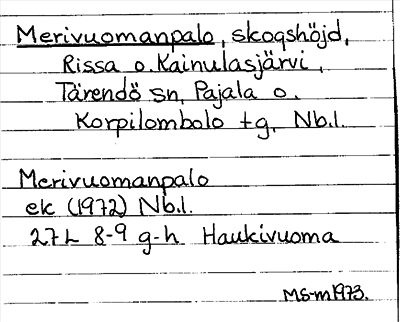 Merivuomanpalo, skogshöjd,
Rissa o. Kainulasjärvi,
Tärendö sn, Pajala o.
Korpilombolo tg, Nb.l.
Merivuomanpalo
ek (1972) Nb.l.
27L 8-9 g-h Haukivuoma
MS-m1973.